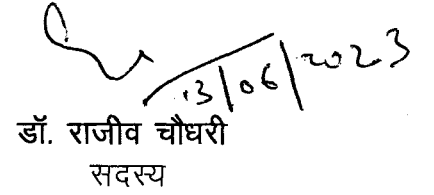 13/06/2023
डॉ. राजीव चौधरी
सदस्य